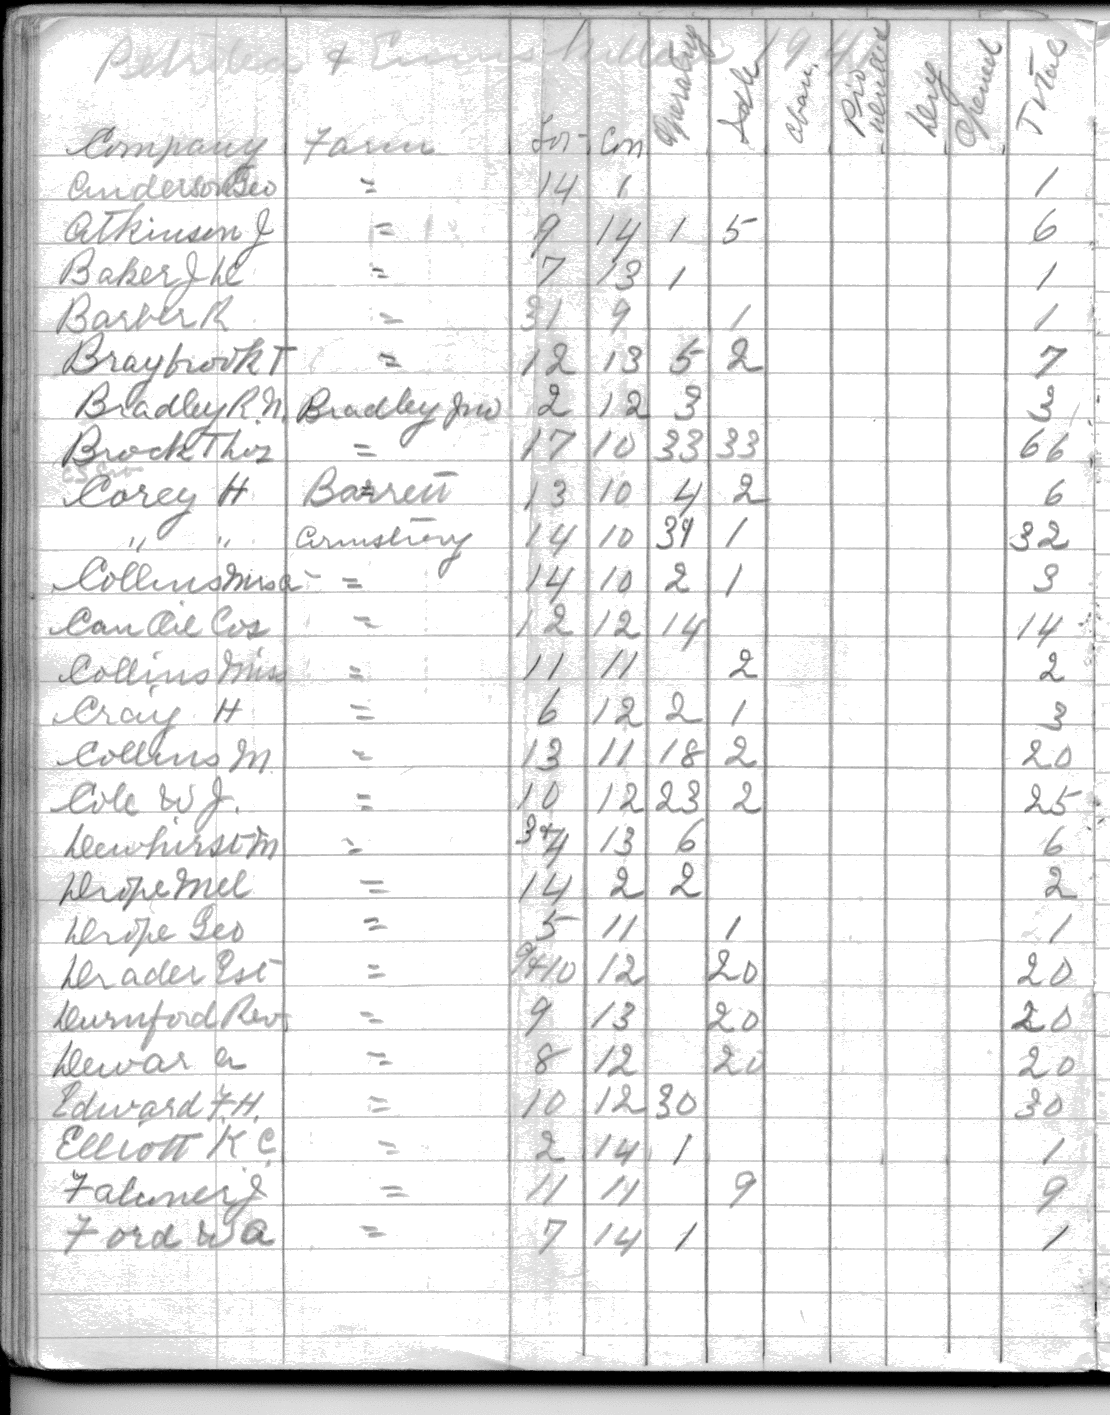 Petrolea & Enniskillen 1941
Company Farm Lot Con Operating Idle Aban. Dry Opened Total
Anderson Geo = 14 1 1
Atkinson J = 9 14 1 5 6
Baker J W = 7 13 1 1
Barber R = 31 9 1 1
Braybrook T = 12 13 5 2 7
Bradley R.N. Bradley Jno 2 12 3 3
Brock Thos = 17 10 33 33 66
Corey H Barrett 13 10 4 2 6
" " Armstrong 14 10 31 1 32
Collins Mrs A = 14 10 2 1 3
Can Oil Cos = 12 12 14 14
Collins Miss = 11 11 2 2
Craig H = 6 12 2 1 3
Collins M = 13 11 18 2 20
Cole W J. = 10 12 23 2 25
Dewhirst M = 3+4 13 6 6
Drope Mel = 14 2 2 2
Drope Geo = 5 11 1 1
Drader Est = 9+10 12 20 20
Durnford Rev. = 9 13 20 20
Dewar A = 8 12 20 20
Edward F.H. = 10 12 30 30
Elliott K C = 2 14 1 1
Falconer J = 11 11 9 9
Ford W A = 7 14 1 1